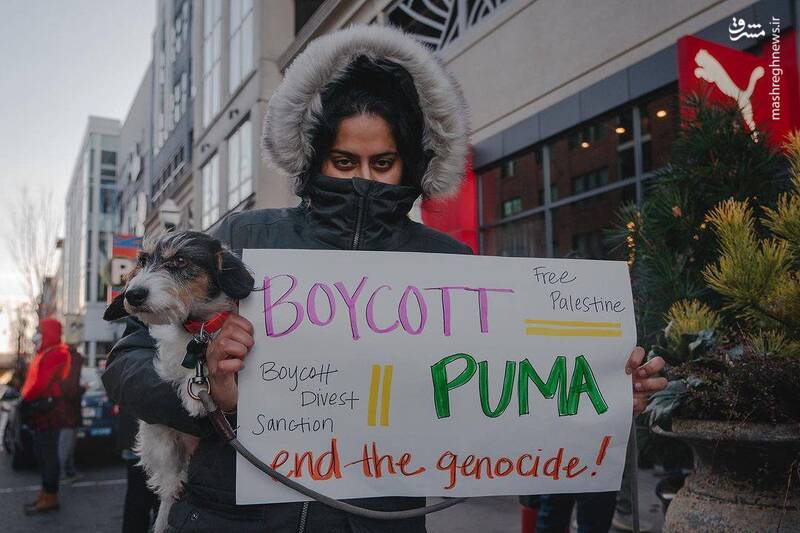 مشرق
mashreghnews.ir
BOYCOTT
Free
Palestine
Boycott
Divest
Sanction
PUMA
end the genocide!